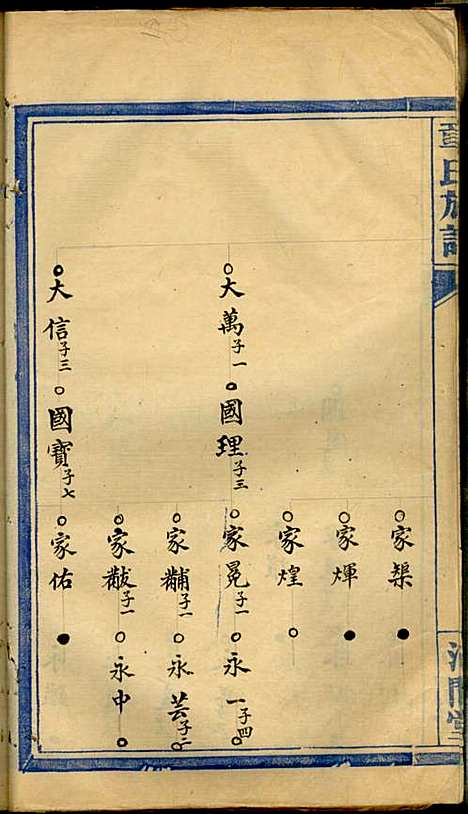 氏族譜
家榘
家煇
家煌
大萬子一 國理子三 家冕子一 永一子四
家黼子一 永芸子二
家黻子一 永中
大信子三 國寶子七 家佑